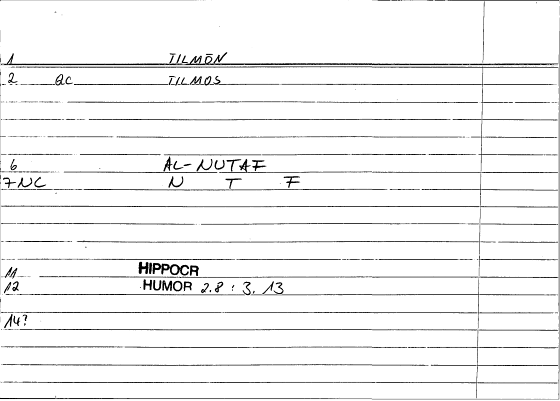 1 TILMŌN
2 QC TILMOS
6 AL-NUTAF
7NC N T F
11 HIPPOCR
12 HUMOR 2.8 : 3. 13
14?